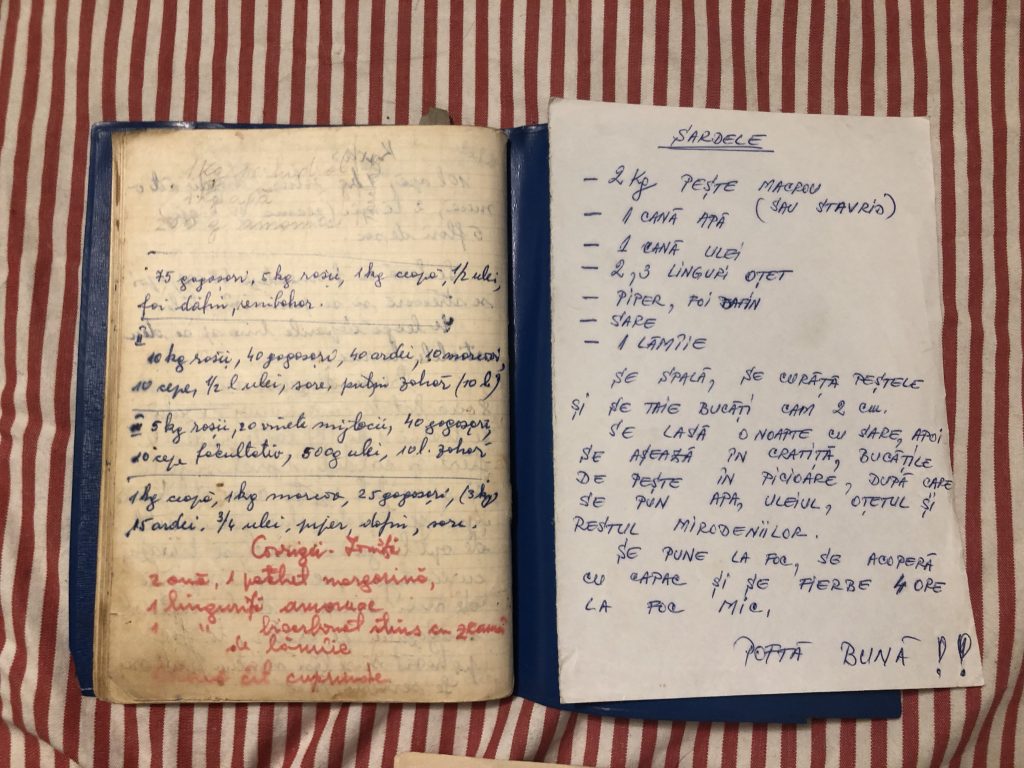 75 gogoșori, 5 kg roșii, 1 kg ceapă, 1/2 ulei,
foi dafin, ienibahar.
II
10 kg roșii, 40 gogoșori, 40 ardei, 10 morcovi,
10 cepe, 1/2 l ulei, sare, puțin zahăr (10 l)
III 5 kg roșii, 20 vinete mijlocii, 40 gogoșari,
10 cepe facultativ, 500 g ulei, 10 l. zahăr
1 kg ceapă, 1 kg morcovi, 25 gogoșori, (3 kg)
15 ardei, 3/4 ulei, piper, dafin, sare.
Covrigei
2 ouă, 1 pachet margarină,
1 linguriță amoniac
1 " bicarbonat stins cu zeamă
de lămîie
cît cuprinde
ȘARDELE
- 2 Kg PEȘTE MACROU
(SAU STAVRID)
- 1 CANĂ APĂ
- 1 CANĂ ULEI
- 2, 3 LINGURI OȚET
- PIPER, FOI DAFIN
- SARE
- 1 LĂMÎIE
SE SPALĂ, SE CURĂȚĂ PEȘTELE
ȘI SE TAIE BUCĂȚI CAM 2 cm.
SE LASĂ O NOAPTE CU SARE, APOI
SE AȘEAZĂ ÎN CRATIȚĂ, BUCĂȚILE
DE PEȘTE ÎN PICIOARE, DUPĂ CARE
SE PUN APA, ULEIUL, OȚETUL ȘI
RESTUL MIRODENIILOR.
SE PUNE LA FOC, SE ACOPERĂ
CU CAPAC ȘI SE FIERBE 4 ORE
LA FOC MIC.
POFTĂ BUNĂ !!